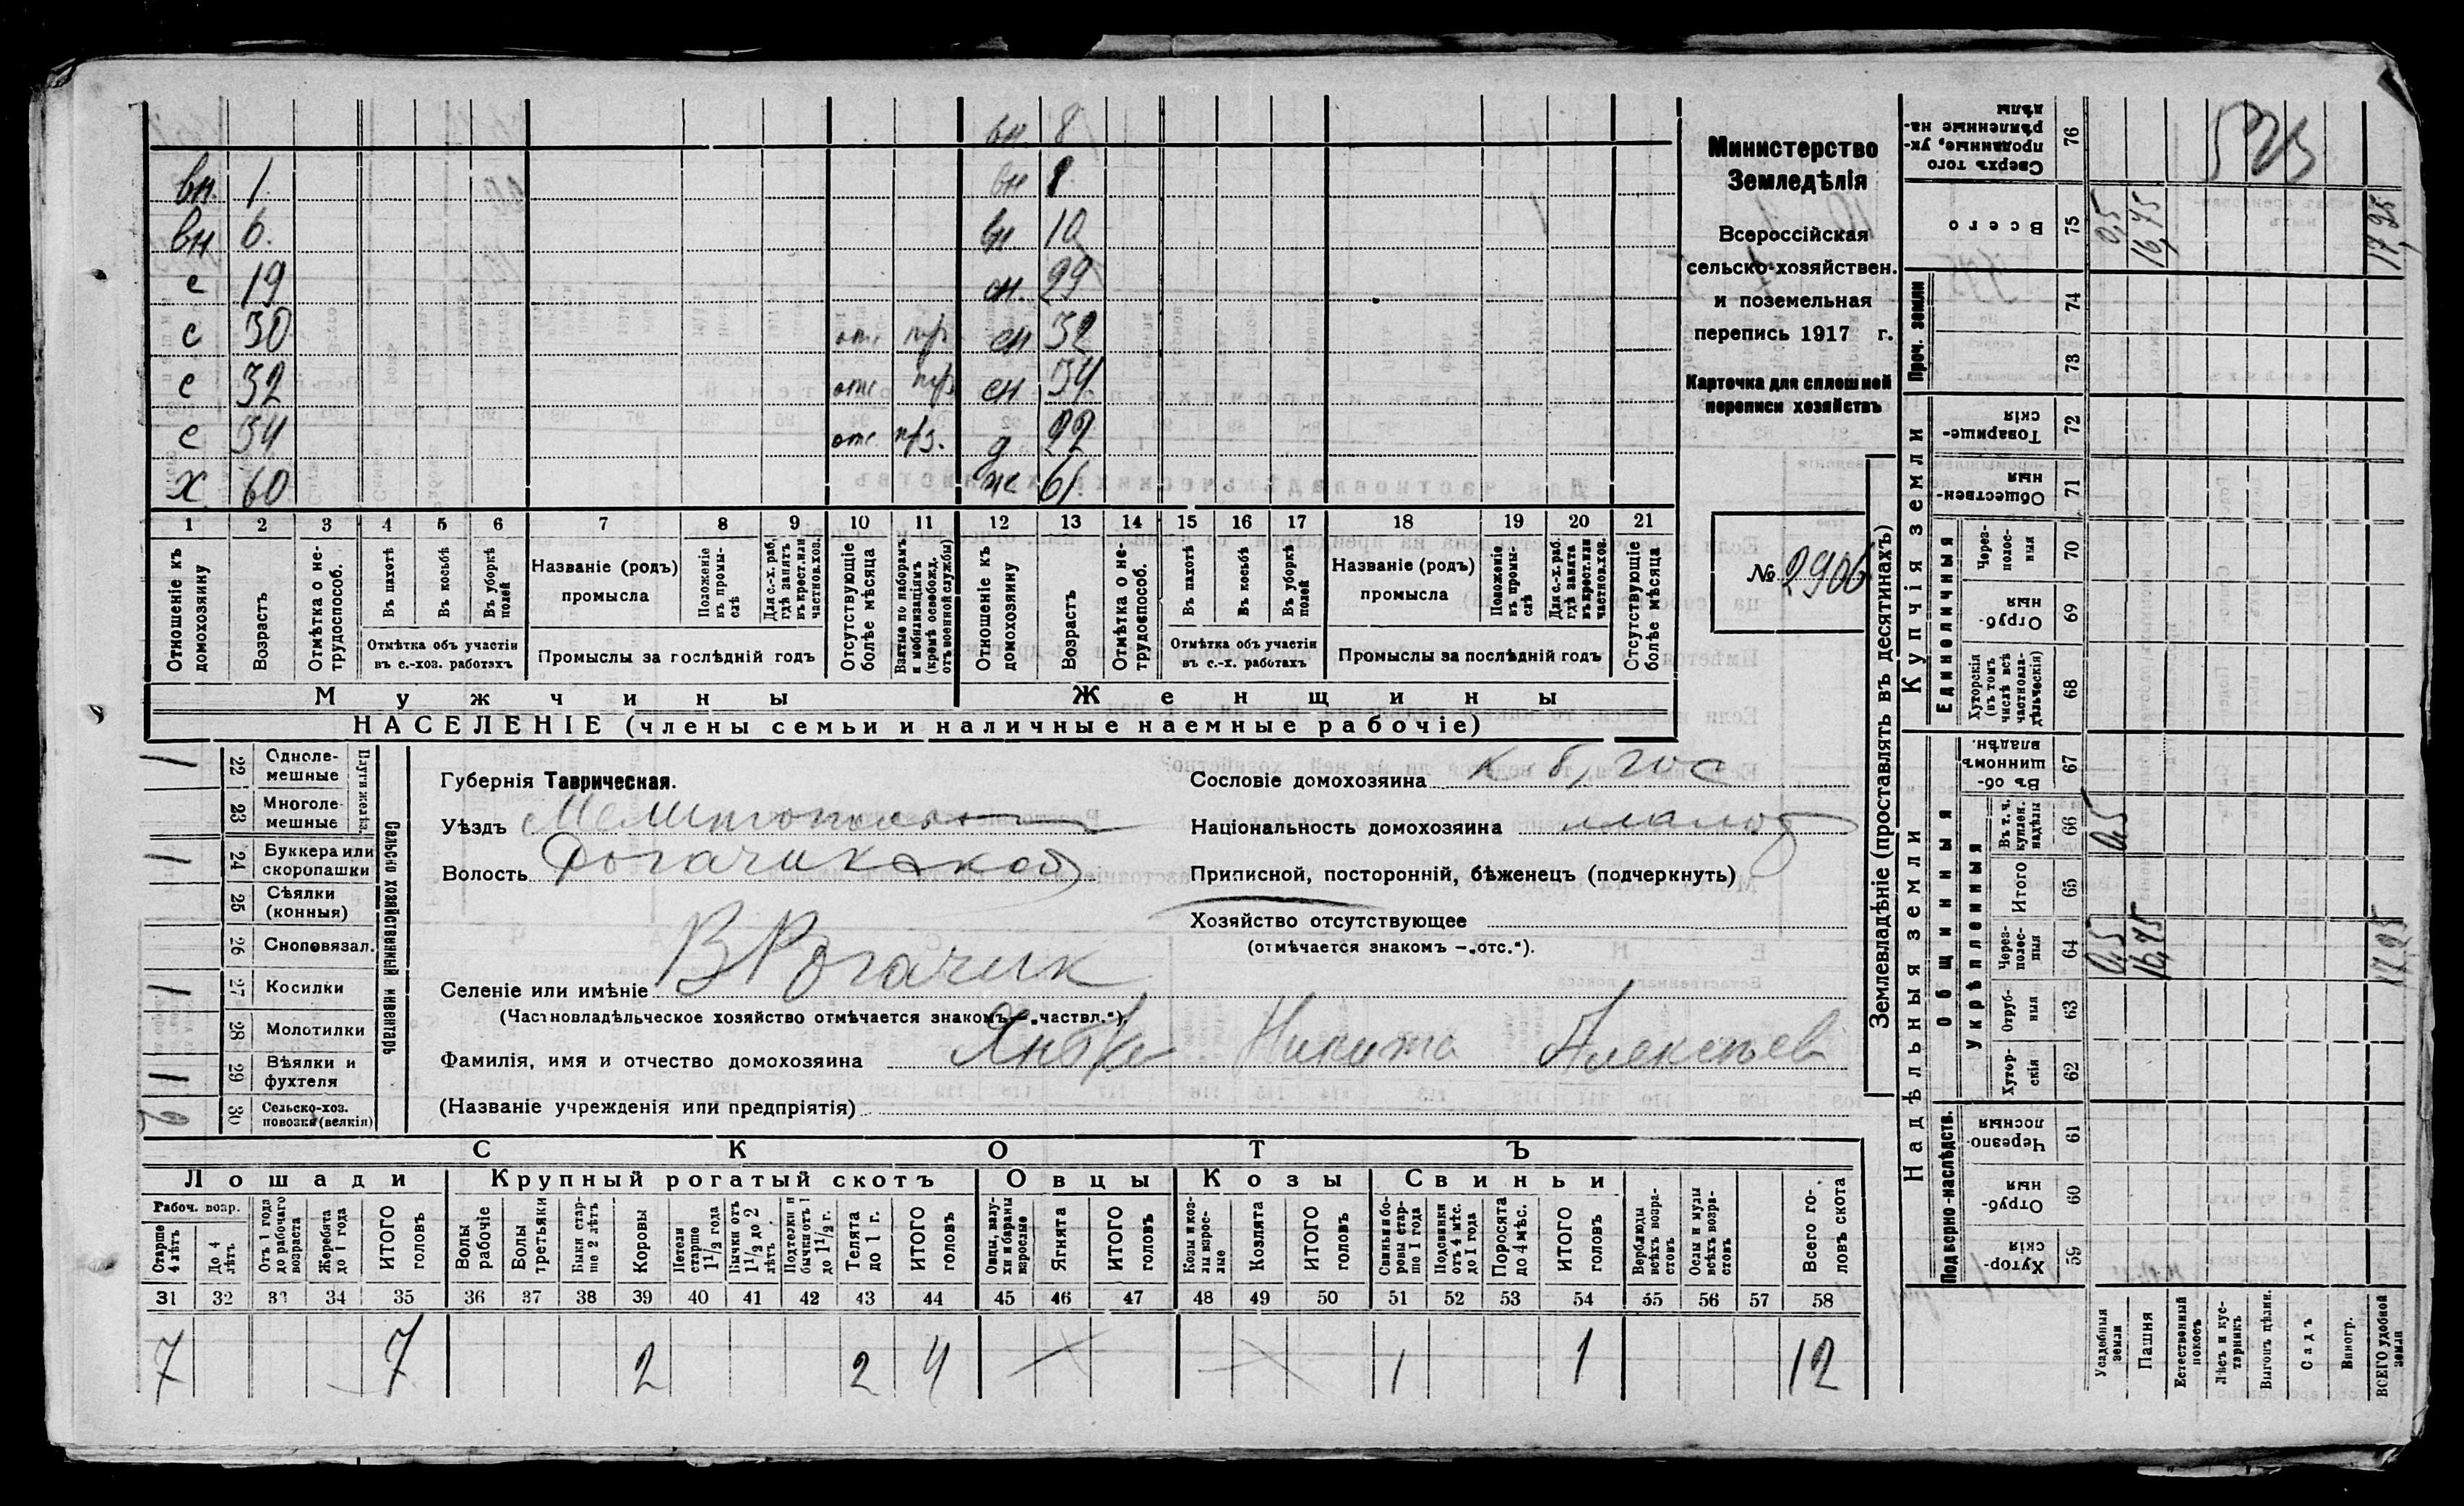 вн. 8
вн. 1. вн 8
вн 6. вн 10
с 19 сн. 29
с 30 отс пр сн 32
с 32 отс пр сн 34
с 34 отс. прз. д 22
х 60 ж 61
1 2 3 4 5 6 7 8 9 10 11 12 13 14 15 16 17 18 19 20 21
Отношеніе къ домохозяину
Возрастъ
Отмѣтка о не-трудоспособ.
Въ пахотѣ
Въ косьбѣ
Въ уборкѣ полей
Отмѣтка объ участіи въ с.-хоз. работахъ
Названіе (родъ) промысла
Положеніе въ промы-слѣ
Для с.-х. раб. гдѣ занятъ въ крест. или частнов. хоз.
Промыслы за послѣдній годъ
Отсутствующіе болѣе мѣсяца
Взятые по наборамъ и мобилизаціямъ (кромѣ освобожд. отъ военной службы)
Отношеніе къ домохозяину
Возрастъ
Отмѣтка о не-трудоспособ.
Въ пахотѣ
Въ косьбѣ
Въ уборкѣ полей
Отмѣтка объ участіи въ с.-х. работахъ
Названіе (родъ) промысла
Положеніе въ промы-слѣ
Для с.-х. раб. гдѣ занята въ крест. или частнов. хоз.
Промыслы за послѣдній годъ
Отсутствующіе болѣе мѣсяца
Мужчины Женщины
НАСЕЛЕНІЕ (члены семьи и наличные наемные рабочіе)
Министерство
Земледѣлія
Всероссійская
сельско-хозяйствен.
и поземельная
перепись 1917 г.
Карточка для сплошной
переписи хозяйствъ
№ 2906
Сельско хозяйственный инвентарь
Плуги желѣз.
1 22 Одноле-мешные
23 Многоле-мешные
1 24 Буккера или скоропашки
25 Сѣялки (конныя)
26 Сноповязал.
1 27 Косилки
28 Молотилки
1 29 Вѣялки и фухтеля
30 Сельско-хоз. повозки (велкія)
Губернія Таврическая.
Уѣздъ Мелитопольск
Волость Рогачикской
Сословіе домохозяина к б, гос
Національность домохозяина малор
Приписной, посторонній, бѣженецъ (подчеркнуть)
Хозяйство отсутствующее
(отмѣчается знакомъ — „отс.“).
Селеніе или имѣніе В Рогачик
(Частновладѣльческое хозяйство отмѣчается знакомъ — „частвл.“)
Фамилія, имя и отчество домохозяина Никита Алексѣев
(Названіе учрежденія или предпріятія)
СКОТЪ
Лошади Крупный рогатый скотъ Овцы Козы Свиньи
Рабоч. возр.
Старше 4 лѣтъ
До 4 лѣтъ
Отъ 1 года до рабочаго возраста
Жеребята до 1 года
ИТОГО головъ
Волы рабочіе
Волы третьяки
Быки стар-ше 2 лѣтъ
Коровы
Нетели старше 1 1/2 года
Бычки отъ 1 1/2 до 2 лѣтъ
Подтелки и бычки отъ 1 до 1 1/2 г.
Телята до 1 г.
ИТОГО головъ
Овцы, валу-хи и бараны взрослые
Ягнята
ИТОГО головъ
Козы и коз-лы взрос-лые
Козлята
ИТОГО головъ
Свиньи и бо-ровы стар-ше 1 года
Подсвинки отъ 4 мѣс. до 1 года
Поросята до 4 мѣс.
ИТОГО головъ
Верблюды всѣхъ возра-стовъ
Ослы и мулы всѣхъ возра-стовъ
Всего го-ловъ скота
31 32 33 34 35 36 37 38 39 40 41 42 43 44 45 46 47 48 49 50 51 52 53 54 55 56 57 58
7 7 2 2 4 1 1 12
Землевладѣніе (проставлять въ десятинахъ)
Надѣльныя земли Купчія земли Проч. земли
Подворно-наслѣдств. Общинныя Единоличныя
Укрѣпленныя
Сверхъ того проданные, ук-рѣпленные на-дѣлы 76
Всего 75 0,5 16,75 17,25
74
73
Товарище-скія 72
Обществен-ныя 71
Через-полос-ныя 70
Отруб-ныя 69
Хуторскія (въ томъ числѣ всѣ частновла-дѣльческія) 68
Въ об-щинномъ владѣн. 67
Въ т. ч. куплен. надѣлы 66 0,5
Итого 65
Через-полос-ныя 64 0,5 16,75 17,25
Отруб-ныя 63
Хутор-скія 62
Черезпо-лосныя 61
Отруб-ныя 60
Хутор-скія 59
Усадебныя земли
Пашня
Естественный покосъ
Лѣсъ и кус-тарникъ
Выгонъ цѣлин.
Садъ
Виногр.
ВСЕГО удобной земли